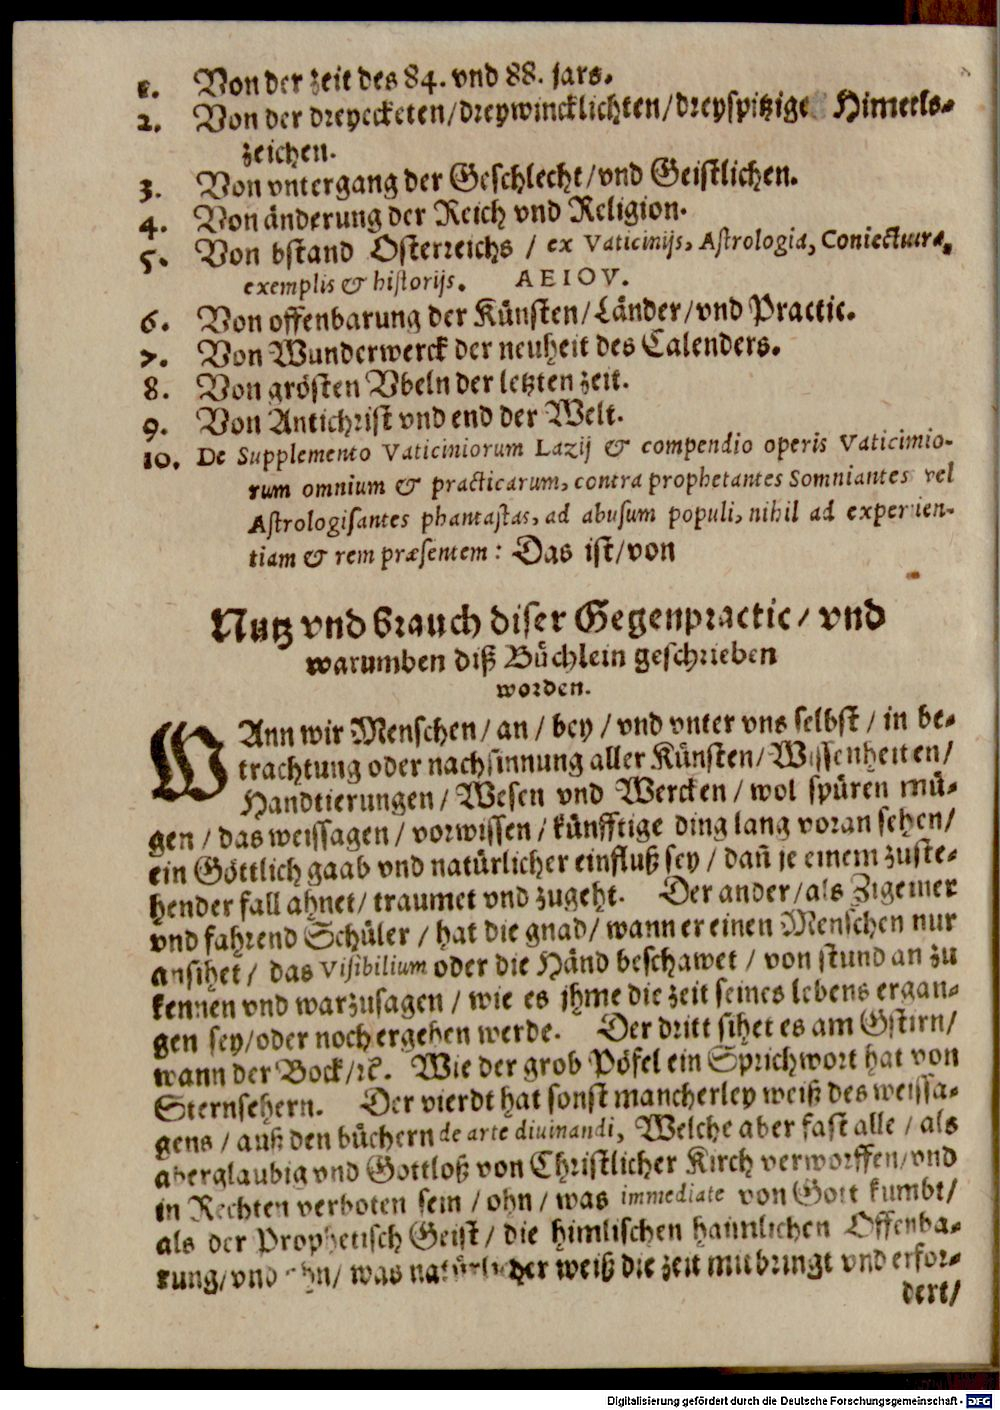 1. Von der zeit des 84. vnd 88. jars.
2. Von der dreyecketen/dreywincklichten/dreyspitzige Himels-
zeichen.
3. Von vntergang der Geschlecht/vnd Geistlichen.
4. Von änderung der Reich vnd Religion.
5. Von bstand Osterreichs / ex Vaticinijs, Astrologia, Coniecturis,
exemplis & historijs. AEIOV.
6. Von offenbarung der Künsten/Länder/vnd Practic.
7. Von Wunderwerck der neuheit des Calenders.
8. Von grösten Vbeln der letzten zeit.
9. Von Antichrist vnd end der Welt.
10. De Supplemento Vaticiniorum Lazij & compendio operis Vaticinio-
rum omnium & practicarum, contra prophetantes Somniantes vel
Astrologisantes phantastas, ad abusum populi, nihil ad experien-
tiam & rem præsentem: Das ist/von
Nutz vnd brauch diser Gegenpractic/ vnd
warumben diß Büchlein geschrieben
worden.
WAnn wir Menschen/ an / bey / vnd vnter vns selbst / in be-
trachtung oder nachsinnung aller Künsten/ Wissenheiten/
Handtierungen / Wesen vnd Wercken / wol spüren mü-
gen / das weissagen / vorwissen / künfftige ding lang voran sehen/
ein Göttlich gaab vnd natürlicher einfluß sey / dañ je einem zuste-
hender fall ahnet/ traumet vnd zugeht. Der ander/als Zigeiner
vnd fahrend Schüler / hat die gnad/ wann er einen Menschen nur
ansihet / das Visibilium oder die Händ beschawet / von stund an zu
kennen vnd warzusagen / wie es jhme die zeit seines lebens ergan-
gen sey/oder noch ergehen werde. Der dritt sihet es am Gstirn/
wann der Bock/ꝛc. Wie der grob Pöfel ein Sprichwort hat von
Sternsehern. Der vierdt hat sonst mancherley weiß des weissa-
gens / auß den büchern de arte diuinandi, Welche aber fast alle / als
aberglaubig vnd Gottloß von Christlicher Kirch verworffen/vnd
in Rechten verboten sein / ohn / was immediate von Gott kumbt/
als der Prophetisch Geist / die himlischen haimlichen Offenba-
rung/vnd ohn/ was natürlicher weiß die zeit mitbringt vnd erfor-
dert/
Digitalisierung gefördert durch die Deutsche Forschungsgemeinschaft - DFG